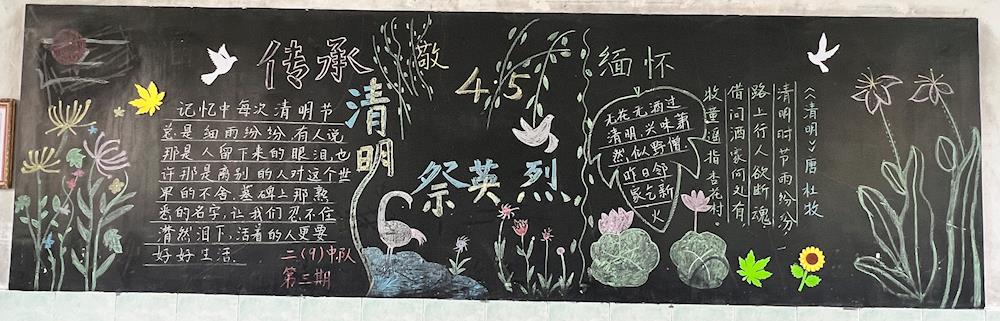 传承
敬
清明
4.5
祭英烈
缅怀
记忆中每次清明节
总是细雨纷纷,有人说
那是人留下来的眼泪,也
许那是离别的人对这个世
界的不舍,墓碑上那熟
悉的名字,让我们忍不住
潸然泪下,活着的人更要
好好生活.
二(9)中队
第三期
无花无酒过
清明,兴味萧
然似野僧.
昨日邻
家乞新
火
《清明》唐 杜牧
清明时节雨纷纷
路上行人欲断魂
借问酒家何处有
牧童遥指杏花村.